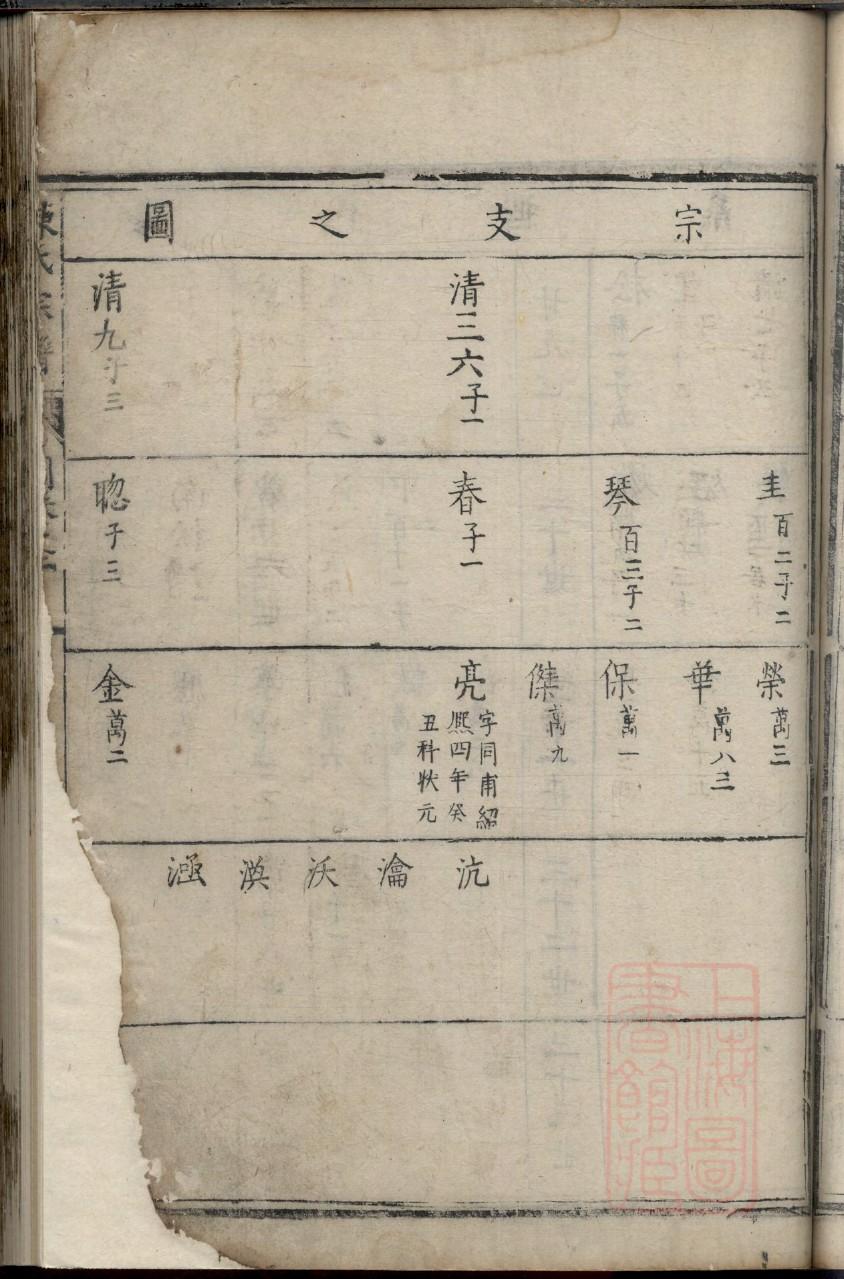 宗支之圖
清三六子一
清九子三
圭百二子二
琴百三子二
春子一
聰子三
榮萬三
華萬八三
保萬一
傑萬九
亮字同甫紹
熙四年癸
丑科狀元
金萬二
沆
瀹
沃
渙
涵
陳氏宗譜
上海圖
書館藏